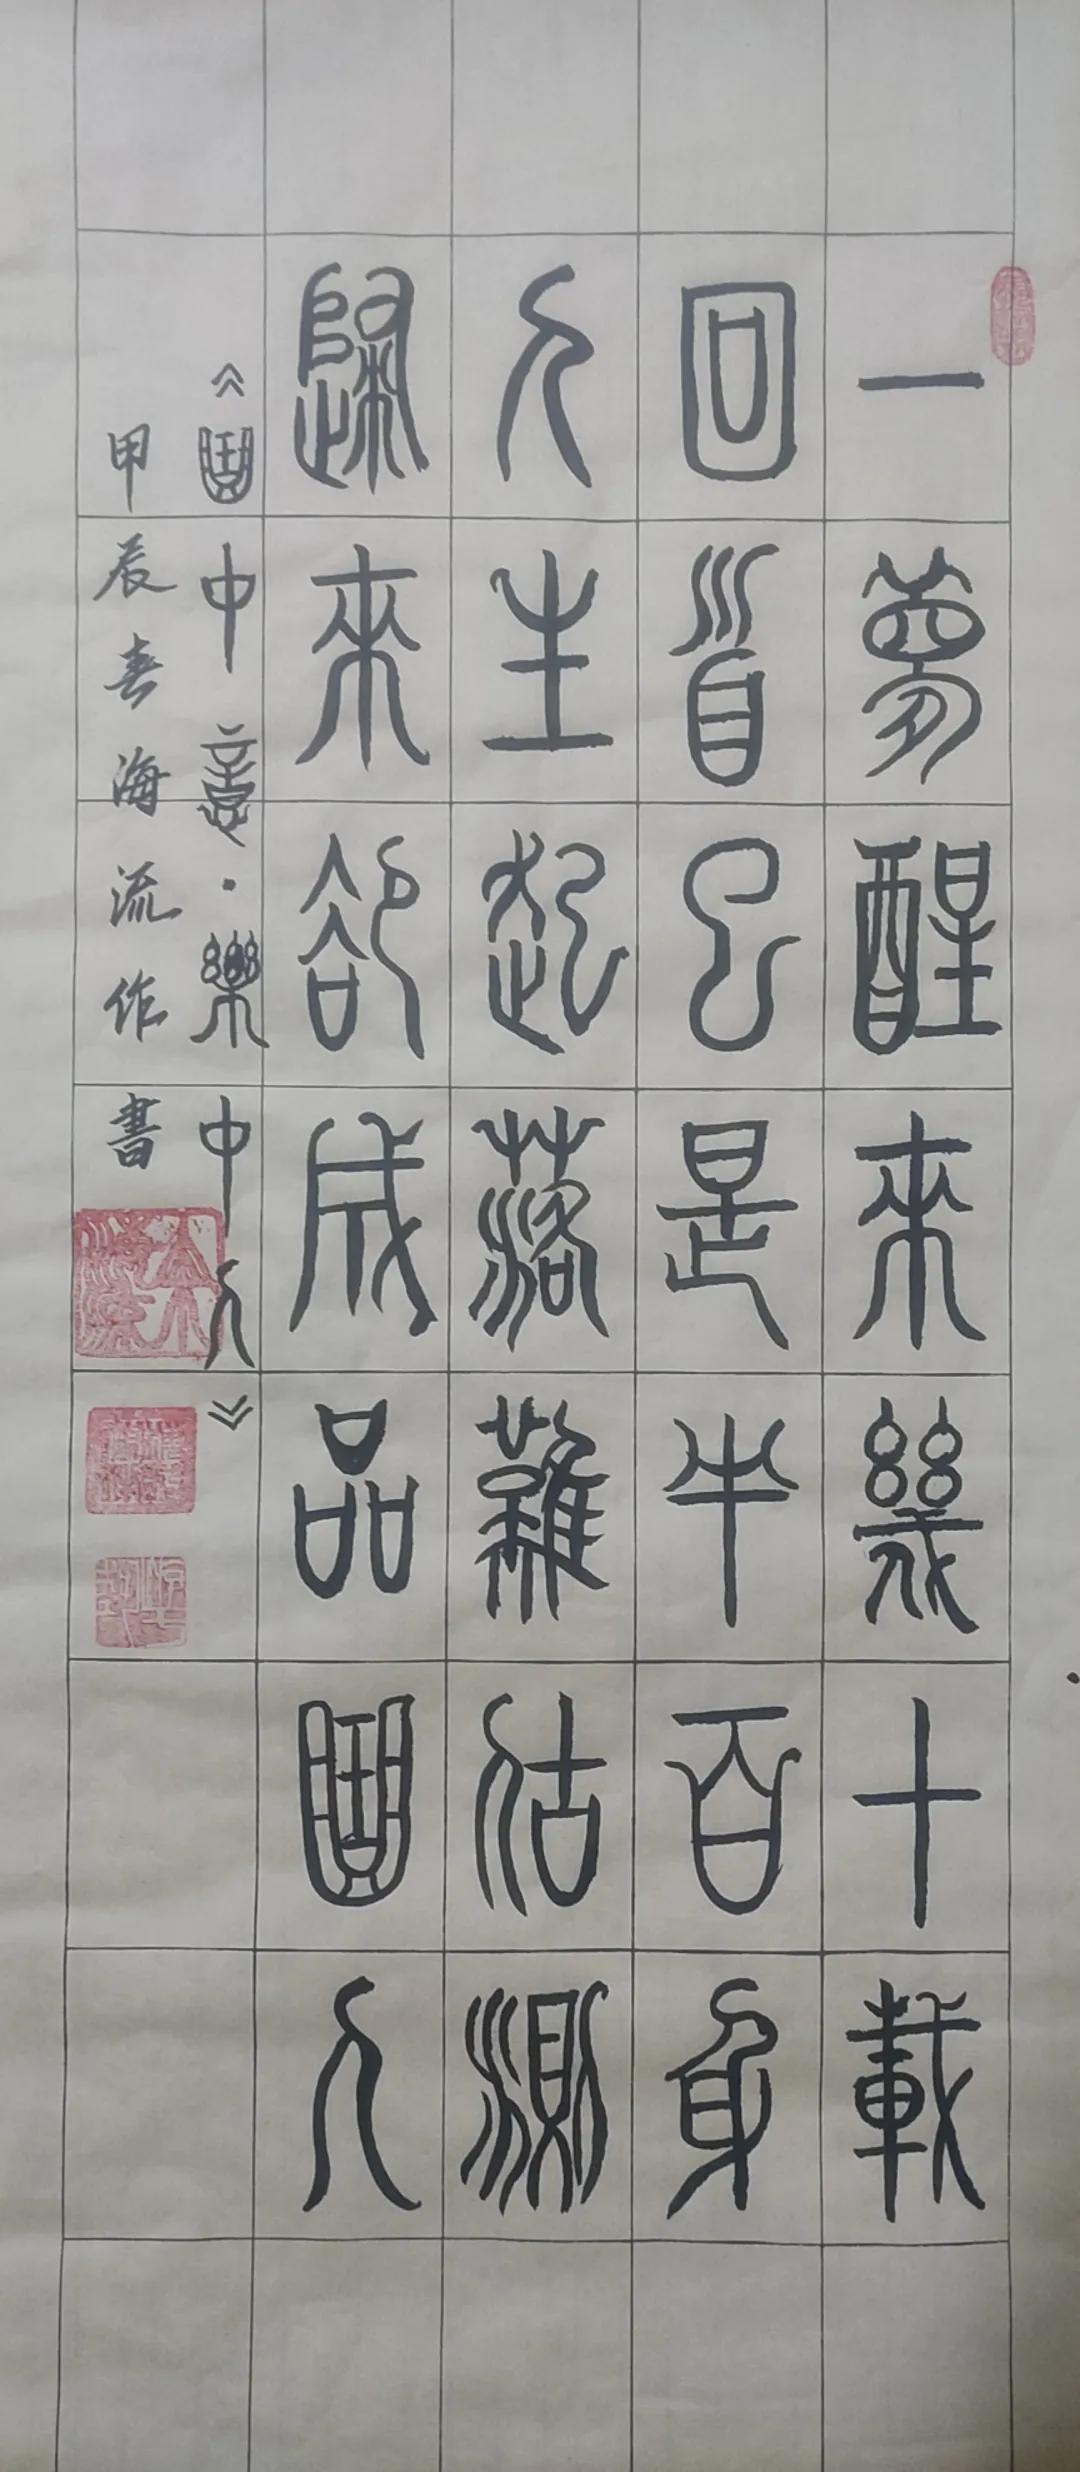 一夢醒來幾十載
回首已是半百身
人生起落難沽測
歸來卻成品人
《中意·樂中人》
甲辰春海流作書